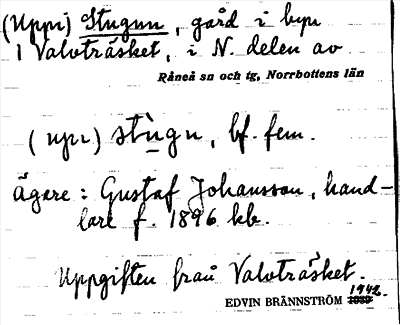 (Uppi) Stugun, gård i byn
Valvträsket, i N. delen av
Råneå sn och tg, Norrbottens län
(upi) stùgu, bf. fem.
Ägare: Gustaf Johansson, hand-
lare f. 1896 kb.
Uppgiften från Valvträsket.
1942.
EDVIN BRÄNNSTRÖM